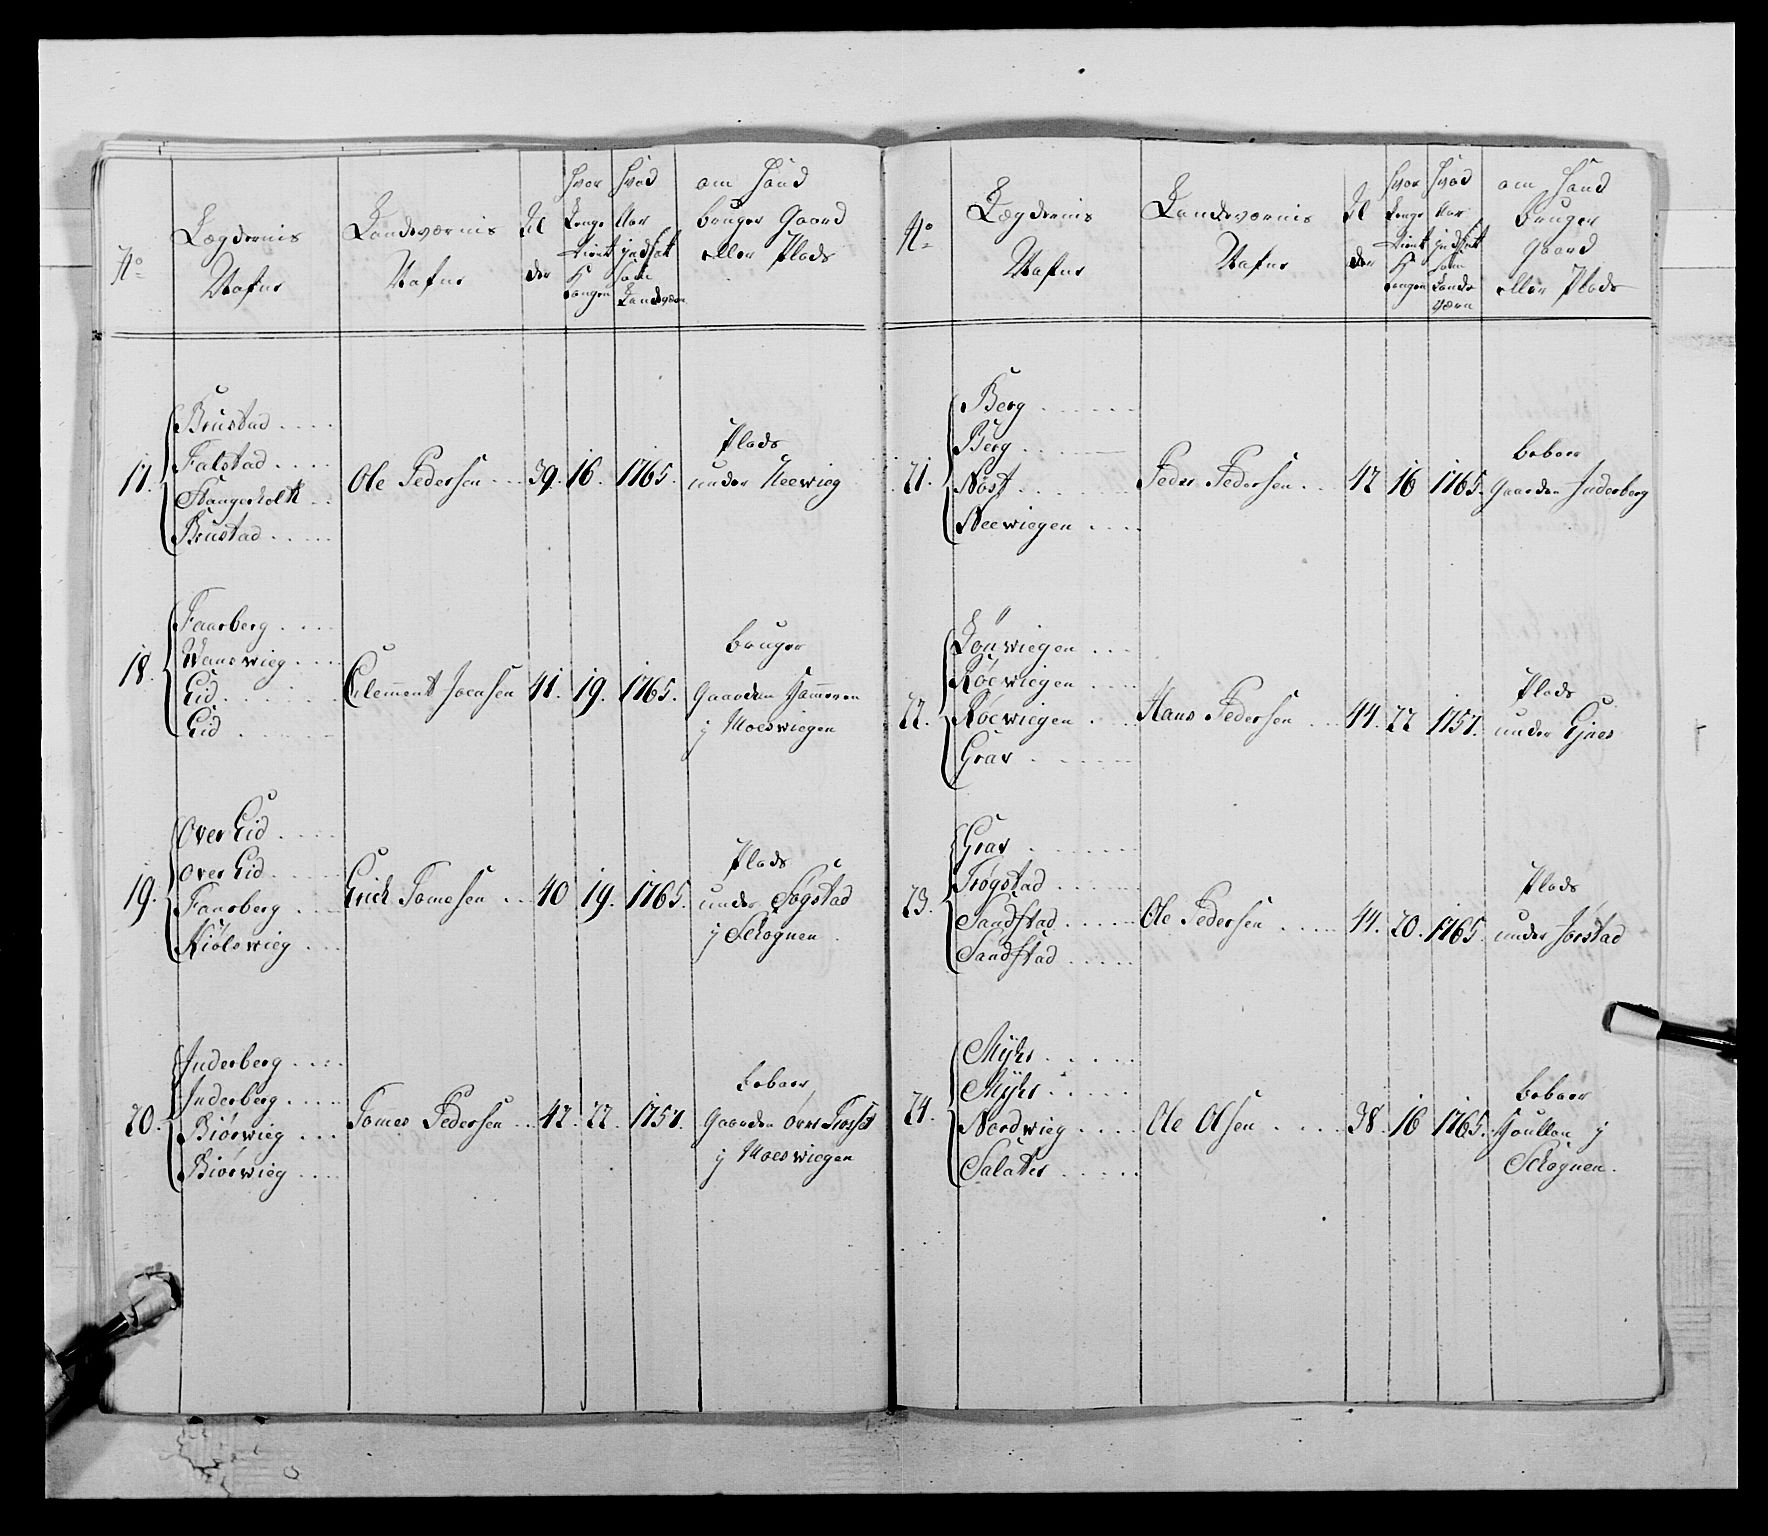 No
Lægdernis
Nafne
Landeværnis
Nafne
Al
der
hvor
Lenge
tient
K
kongen
hvad
Aar
indsat
som
Landeværn
om hand
bruger Gaard
eller Plads
17.
Brustad
Falstad
Stangerholt
Brustad
Ole Pedersen
39.
16.
1765.
Plads
under Neewieg
18.
Faarberg
Wanswieg
Eid
Eid
Clemment Jocasen
41.
19.
1765.
bruger
Gaarden Hammeren
j Moeswiegen
19.
Over Eid
over Eid
Faarberg
Kiølswieg
Erich Tomesen
40
19.
1765.
Plads
under Fogstad
j Schognen
20.
Inderberg
Inderberg
Biørwieg
Biørwieg
Tomes Pedersen
42.
22.
1757.
beboer
Gaarden over
j Moeswiegen
No
Lægdernis
Nafne
Landeværnis
Nafne
Al
der
hvor
Lenge
tient
K
kongen
hvad
Aar
indsat
som
Lande
værn
om Hand
bruger
Gaard
eller Plads
21.
Berg
Berg
Nøst
Neewiegen
Peder Pedersen
42
16
1765.
beboer
Gaarden Inderberg
22.
Lønwiegen
Røewiegen
Røewiegen
Grav
Hans Pedersen
44.
22
1757.
Plads
under
23.
Grav
Trøgstad
Sandstad
Sandstad
Ole Pedersen
44.
20.
1765.
Plads
under Jørstad
24.
Myhr
Myhr
Nordwieg
Salater
Ole Olsen
38.
16
1765.
beboer
j
Schognen.